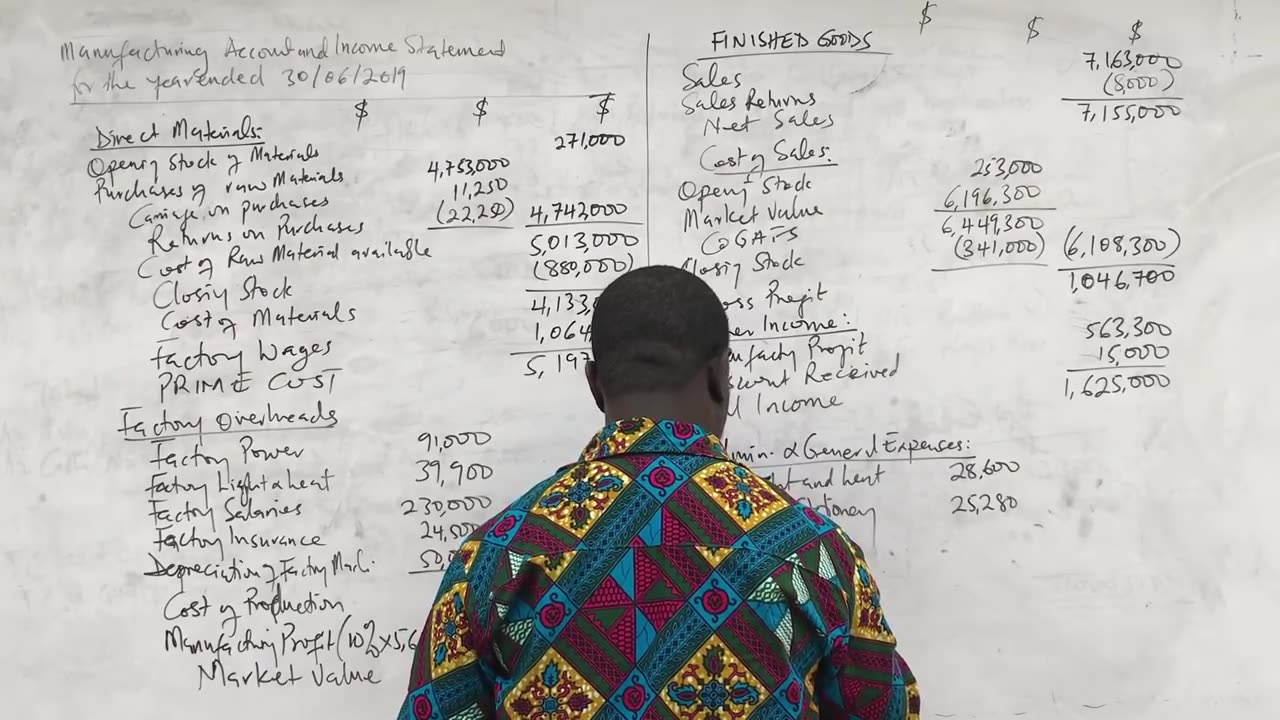 Manufacturing Account and Income Statement
for the year ended 30/06/2019
$ $ $
Direct Materials:
Opening Stock of Materials 271,000
Purchases of raw Materials 4,753,000
Carriage on purchases 11,250
Returns on Purchases (22,250) 4,742,000
Cost of Raw Material available 5,013,000
Closing Stock (880,000)
Cost of Materials 4,133,
Factory Wages 1,064
PRIME COST 5,197
Factory Overheads
Factory Power 91,000
Factory Light & heat 39,900
Factory Salaries 230,000
Factory Insurance 24,000
Depreciation of Factory Mach. 50,0
Cost of Production
Manufacturing Profit (10% x 5,6
Market Value
$ $ $
FINISHED GOODS
Sales 7,163,000
Sales Returns (8000)
Net Sales 7,155,000
Cost of Sales:
Opening Stock 253,000
Market Value 6,196,300
COGAFS 6,449,300
Closing Stock (341,000) (6,108,300)
oss Profit 1,046,700
er Income:
nufacty Profit 563,300
scount Received 15,000
l Income 1,625,000
min. & General Expenses:
ht and heat 28,600
25,280